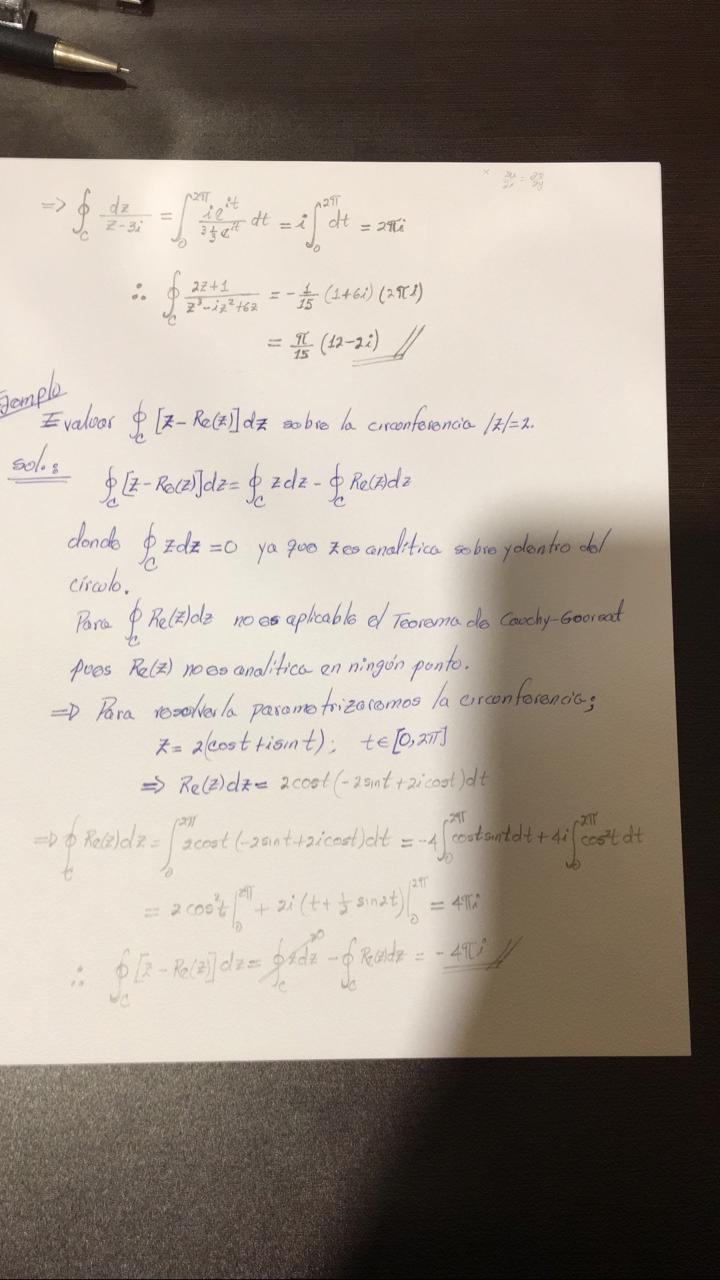 × ∂u/∂x = ∂v/∂y
=> ∮_C dz/(z-3i) = ∫_0^{2π} ie^{it}/e^{it} dt = i∫_0^{2π} dt = 2πi
∴ ∮_C (2z+1)/(z³-iz²+6z) = -1/15 (1+6i)(2πi)
= π/15 (12-2i)
Ejemplo
Evaluar ∮_C [z-Re(z)]dz sobre la circunferencia |z|=2.
sol.:
∮_C [z-Re(z)]dz = ∮_C zdz - ∮_C Re(z)dz
donde ∮_C zdz=0 ya que z es analítica sobre y dentro del
círculo.
Para ∮_C Re(z)dz no es aplicable el Teorema de Cauchy-Goursat
pues Re(z) no es analítica en ningún punto.
=> Para resolverla parametrizaremos la circunferencia;
z = 2(cost+isint); t∈[0,2π]
=> Re(z)dz = 2cost(-2sint+2icost)dt
=> ∮_C Re(z)dz = ∫_0^{2π} 2cost(-2sint+2icost)dt = -4∫_0^{2π} costsintdt + 4i∫_0^{2π} cos²t dt
= 2cos²t|_0^{2π} + 2i(t+½sin2t)|_0^{2π} = 4πi
∴ ∮_C [z-Re(z)]dz = ∮_C zdz⁰ - ∮_C Re(z)dz = -4πi